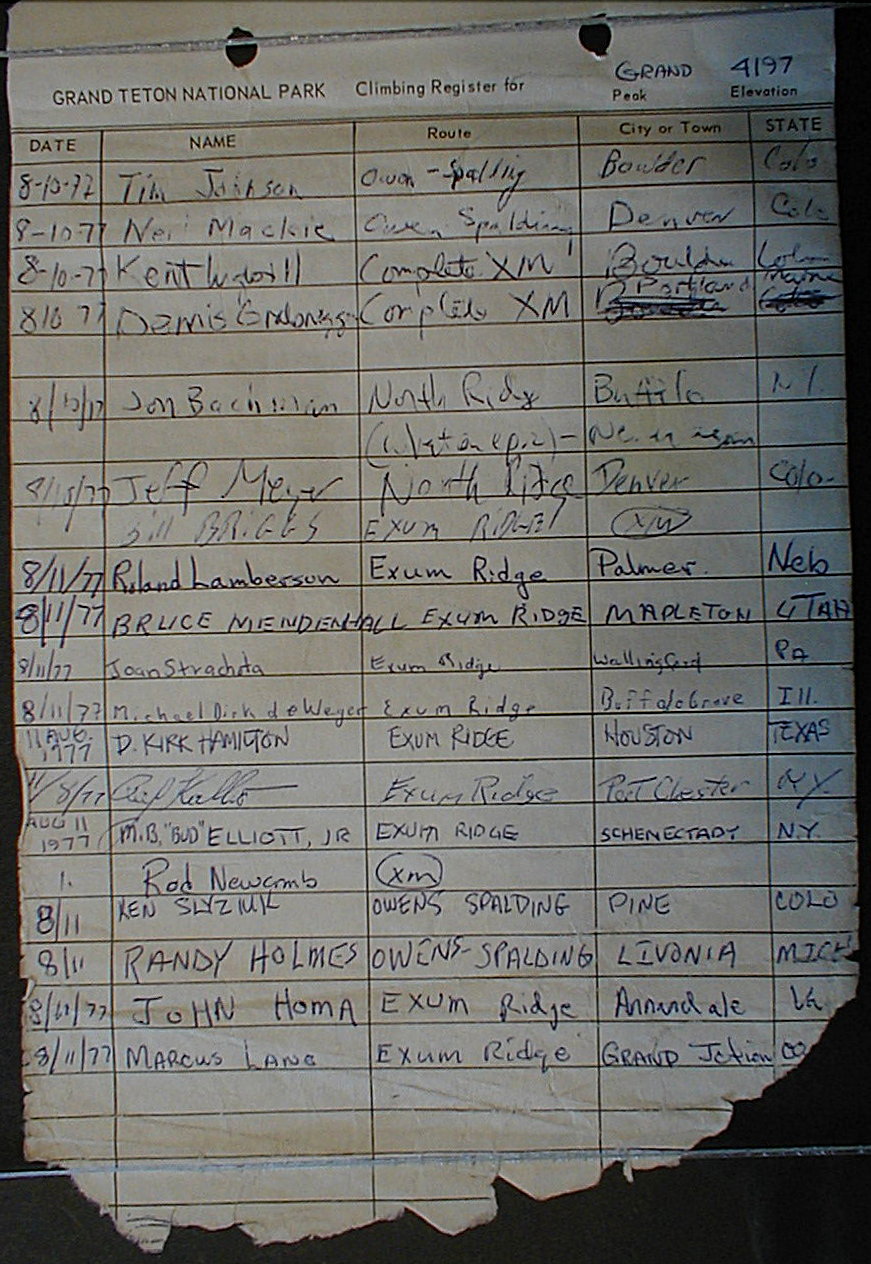 GRAND TETON NATIONAL PARK Climbing Register for GRAND 4197
Peak Elevation
DATE NAME Route City or Town STATE
8-10-77 Tim Johnson Owen-Spalding Boulder Colo
8-10-77 Neil Mackie Owen Spalding Denver Colo
8-10-77 Kent Complete XM Boulder
8 10 77 Dennis Complete XM Portland
8/10/77 Jon Bachman North Ridge Buffalo N.Y.
8/10/77 Jeff Meyer North Ridge Denver Colo.
Bill BRIGGS EXUM RIDGE XM
8/11/77 Roland Lamberson Exum Ridge Palmer. Neb
8/11/77 BRUCE MENDENHALL EXUM RIDGE MAPLETON UTAH
8/11/77 Joan Strachota Exum Ridge Wallingford PA
8/11/77 Michael Dirk deWeger Exum Ridge Buffalo Grove Ill.
11 AUG. 1977 D. KIRK HAMILTON EXUM RIDGE HOUSTON TEXAS
Exum Ridge Port Chester NY
AUG 11 1977 M.B. "BUD" ELLIOTT, JR EXUM RIDGE SCHENECTADY N.Y.
Rod Newcomb xm
8/11 KEN SLYZIUK OWENS SPALDING PINE COLO
8/11 RANDY HOLMES OWENS-SPALDING LIVONIA MICH
8/11/77 JOHN HOMA EXUM Ridge Annandale Va
8/11/77 MARCUS LANG EXUM Ridge GRAND Jction CO